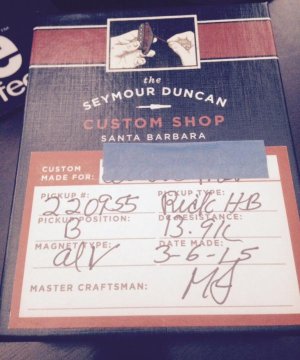 the
SEYMOUR DUNCAN
CUSTOM SHOP
SANTA BARBARA
CUSTOM
MADE FOR:
PICKUP #: PICKUP TYPE:
220955 Rick HB
PICKUP POSITION: DC RESISTANCE:
B 13.91k
MAGNET TYPE: DATE MADE:
alV 3-6-15
MASTER CRAFTSMAN:
MJ